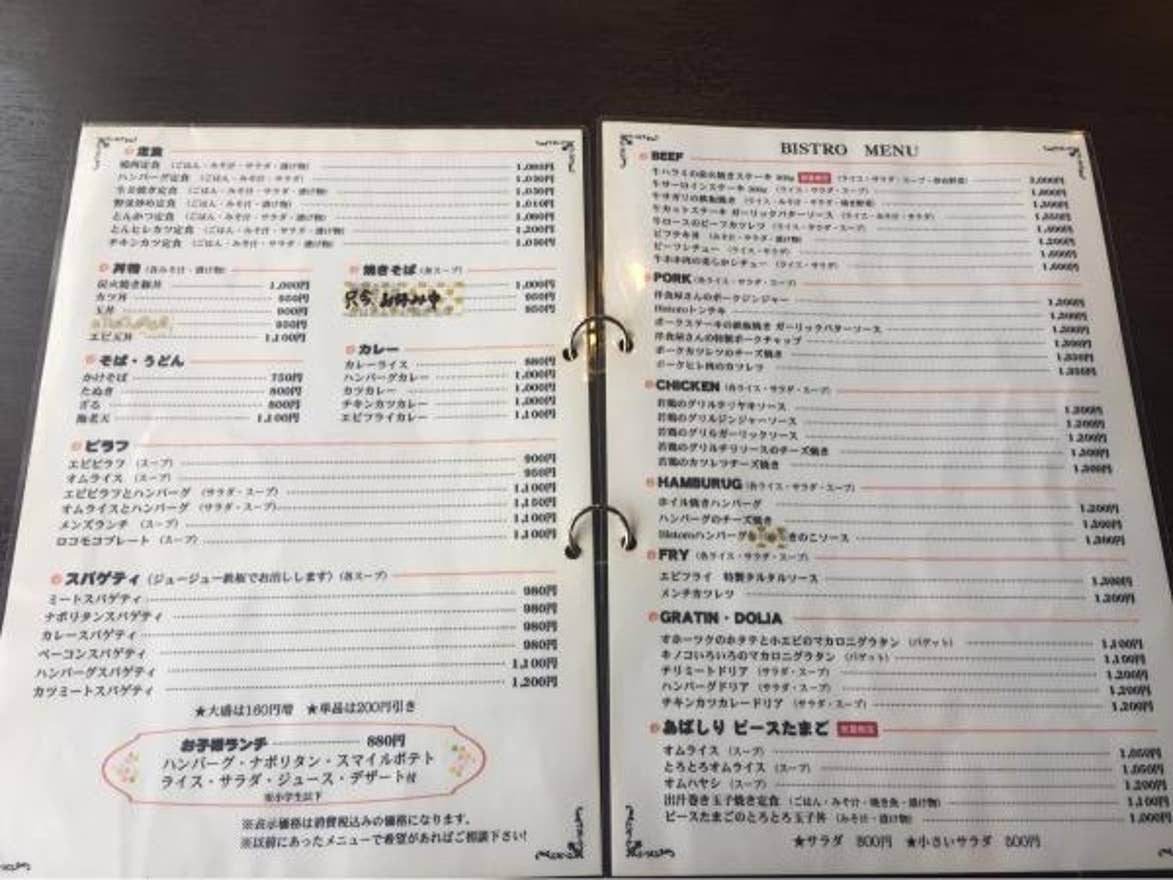 定食
焼肉定食 (ごはん・みそ汁・サラダ・漬け物) 1,080円
ハンバーグ定食 (ごはん・みそ汁・サラダ・漬け物) 1,030円
生姜焼き定食 (ごはん・みそ汁・サラダ・漬け物) 1,030円
野菜炒め定食 (ごはん・みそ汁・サラダ・漬け物) 1,010円
とんかつ定食 (ごはん・みそ汁・サラダ・漬け物) 1,080円
とんヒレカツ定食 (ごはん・みそ汁・サラダ・漬け物) 1,200円
チキンカツ定食 (ごはん・みそ汁・サラダ・漬け物) 1,030円
丼物 (各みそ汁・漬け物)
炭火焼き豚丼 1,000円
カツ丼 950円
玉丼 900円
950円
エビ天丼 1,100円
焼きそば (各スープ)
1,000円
只今、お休み中 950円
950円
そば・うどん
かけそば 750円
たぬき 800円
ざる 800円
海老天 1,100円
カレー
カレーライス 880円
ハンバーグカレー 1,000円
カツカレー 1,000円
チキンカツカレー 1,000円
エビフライカレー 1,100円
ピラフ
エビピラフ (スープ) 900円
オムライス (スープ) 950円
エビピラフとハンバーグ (サラダ・スープ) 1,100円
オムライスとハンバーグ (サラダ・スープ) 1,150円
メンズランチ (スープ) 1,100円
ロコモコプレート (スープ) 1,100円
スパゲティ (ジュージュー鉄板でお出しします) (各スープ)
ミートスパゲティ 980円
ナポリタンスパゲティ 980円
カレースパゲティ 980円
ベーコンスパゲティ 980円
ハンバーグスパゲティ 1,100円
カツミートスパゲティ 1,200円
★大盛は160円増 ★単品は200円引き
お子様ランチ 880円
ハンバーグ・ナポリタン・スマイルポテト
ライス・サラダ・ジュース・デザート付
※小学生以下
※表示価格は消費税込みの価格になります。
※以前にあったメニューで希望があればご相談下さい!
BISTRO MENU
BEEF
牛ハラミの炭火焼きステーキ 200g (ライス・サラダ・スープ・
牛サーロインステーキ 200g (ライス・サラダ・スープ) 1,800円
牛サガリの鉄板焼き (ライス・みそ汁・サラダ・
牛カットステーキ ガーリックバターソース (ライス・みそ汁・サラダ)
牛ロースのビーフカツレツ (ライス・サラダ・スープ)
ビフテキ丼 (みそ汁・サラダ・漬け物) 1,200円
ビーフシチュー (ライス・サラダ) 1,600円
牛ホホ肉の柔らかシチュー (ライス・サラダ) 1,600円
PORK (各ライス・サラダ・スープ)
洋食屋さんのポークジンジャー 1,200円
Bistoroトンテキ
ポークステーキの鉄板焼き ガーリックバターソース
洋食屋さんの特製ポークチャップ
ポークカツレツのチーズ焼き
ポークヒレ肉のカツレツ
CHICKEN (各ライス・サラダ・スープ)
若鶏のグリルテリヤキソース 1,200円
若鶏のグリルジンジャーソース 1,200円
若鶏のグリルガーリックソース 1,200円
若鶏のグリルチリソースのチーズ焼き
若鶏のカツレツチーズ焼き
HAMBURUG (各ライス・サラダ・スープ)
ホイル焼きハンバーグ 1,200円
ハンバーグのチーズ焼き
Bistoroハンバーグ きのこソース
FRY (各ライス・サラダ・スープ)
エビフライ 特製タルタルソース
メンチカツレツ 1,200円
GRATIN・DOLIA
オホーツクのホタテと小エビのマカロニグラタン (バゲット) 1,100円
キノコいろいろのマカロニグラタン (バゲット) 1,100円
チリミートドリア (サラダ・スープ) 1,200円
ハンバーグドリア (サラダ・スープ) 1,200円
チキンカツカレードリア (サラダ・スープ) 1,200円
あばしり ピースたまご
オムライス (スープ) 1,050円
とろとろオムライス (スープ) 1,050円
オムハヤシ (スープ) 1,200円
出汁巻き玉子焼き定食 (ごはん・みそ汁・焼き魚・漬け物) 1,100円
ピースたまごのとろとろ玉子丼 (みそ汁・漬け物) 1,000円
★サラダ 500円 ★小さいサラダ 300円